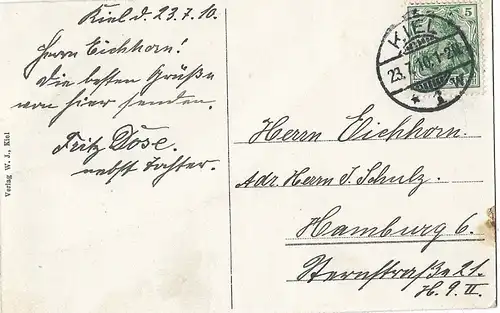 Kiel d. 23.7.10.
Herrn Eichhorn!
Die besten Grüße
von hier senden.
Fritz Döse.
nebst Tochter.
Verlag W. J., Kiel
5
KIEL
23.7.10.
* 1
Herrn Eichhorn
Adr. Herrn J. Schulz.
Hamburg 6.
Sternstraße 21.
H. 9. II.